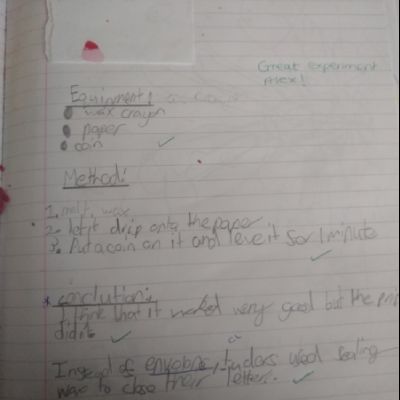 Great experiment
Alex!
Equipment:
wax crayon
paper
coin
Method:
1. melt wax
2. let it drip onto the paper
3. Put a coin on it and leve it for 1 minute
conclution:
I think that it worked very good but the
didn't
Instead of envelopes, tudors used sealing
wax to close their letters.